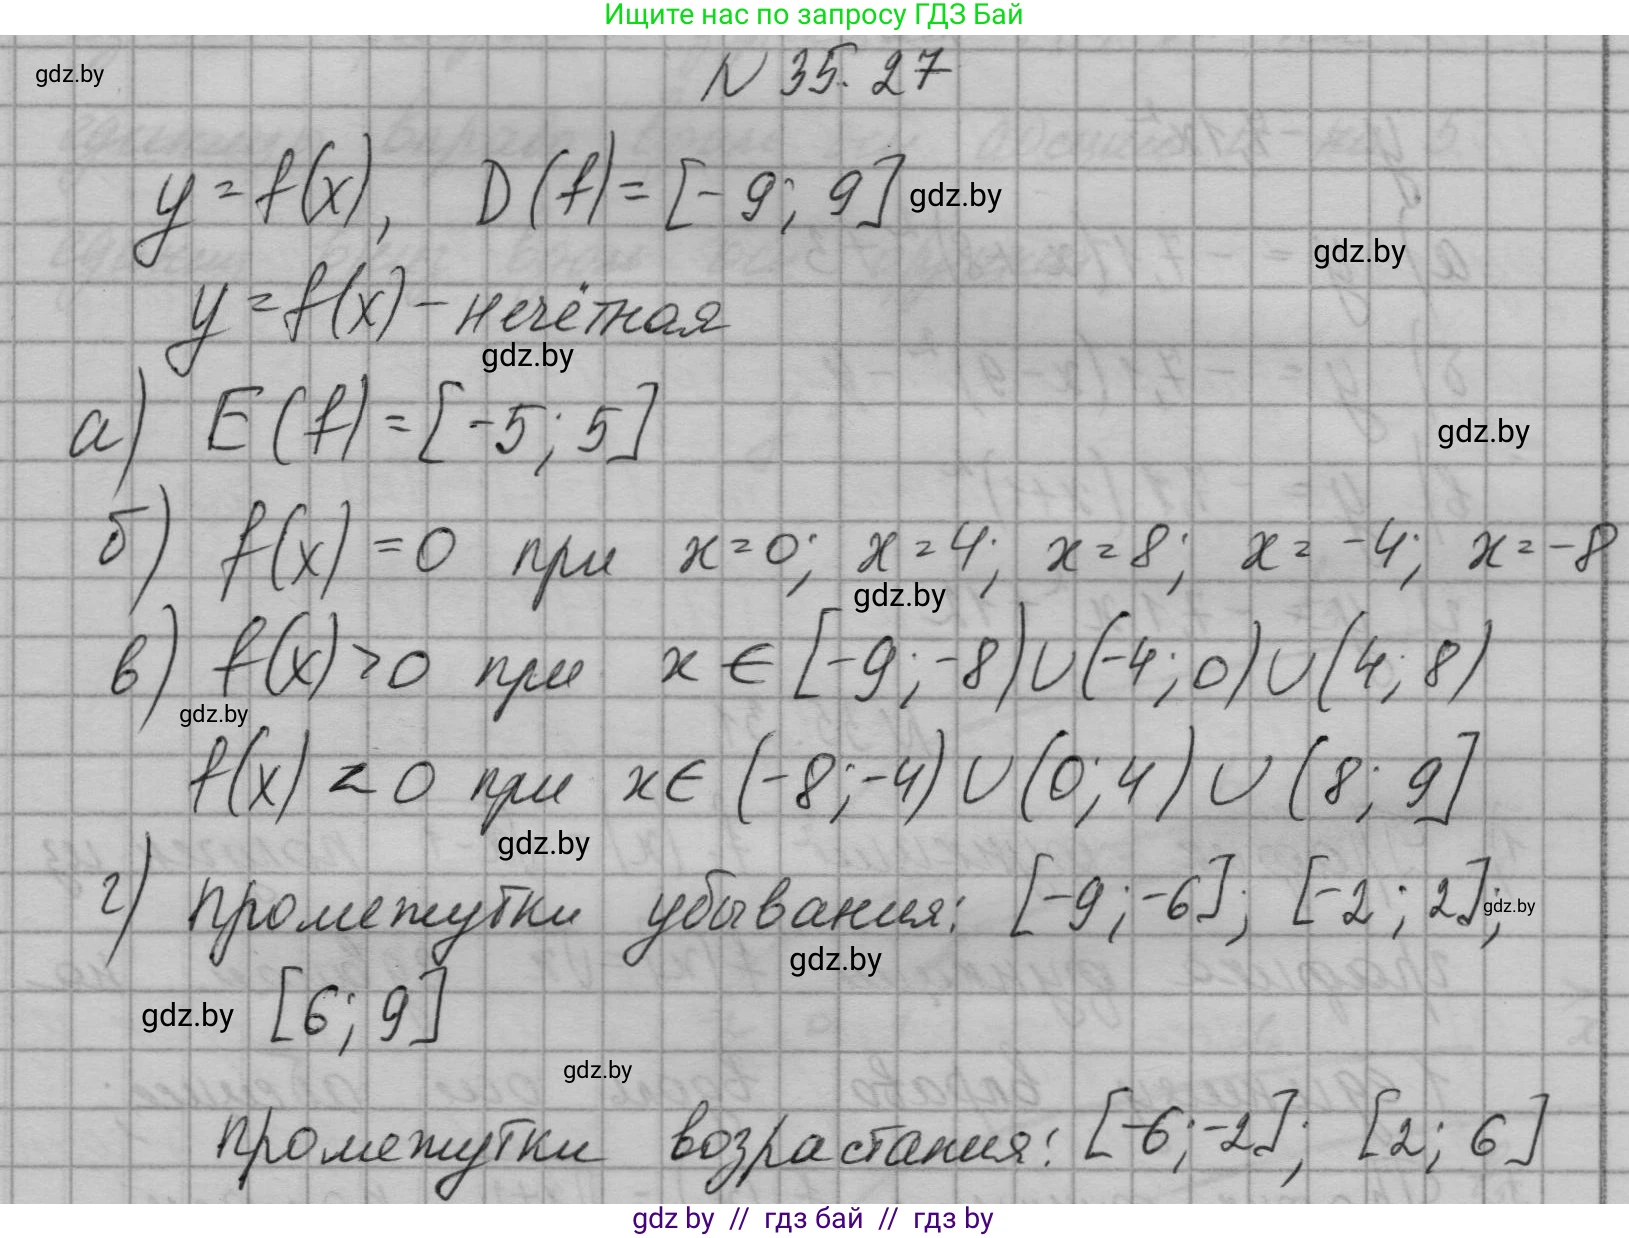 Ищите нас по запросу ГДЗ Бай
N 35.27
gdz.by
y = f(x), D(f) = [-9; 9] gdz.by
gdz.by
y = f(x) - нечётная
gdz.by
а) E(f) = [-5; 5]
gdz.by
б) f(x) = 0 при x = 0; x = 4; x = 8; x = -4; x = -8
gdz.by
в) f(x) > 0 при x ∈ [-9; -8) ∪ (-4; 0) ∪ (4; 8)
gdz.by
f(x) < 0 при x ∈ (-8; -4) ∪ (0; 4) ∪ (8; 9]
gdz.by
г) промежутки убывания: [-9; -6]; [-2; 2]; gdz.by
gdz.by
gdz.by [6; 9]
gdz.by
промежутки возрастания: [-6; -2]; [2; 6]
gdz by // гдз бай // гдз by